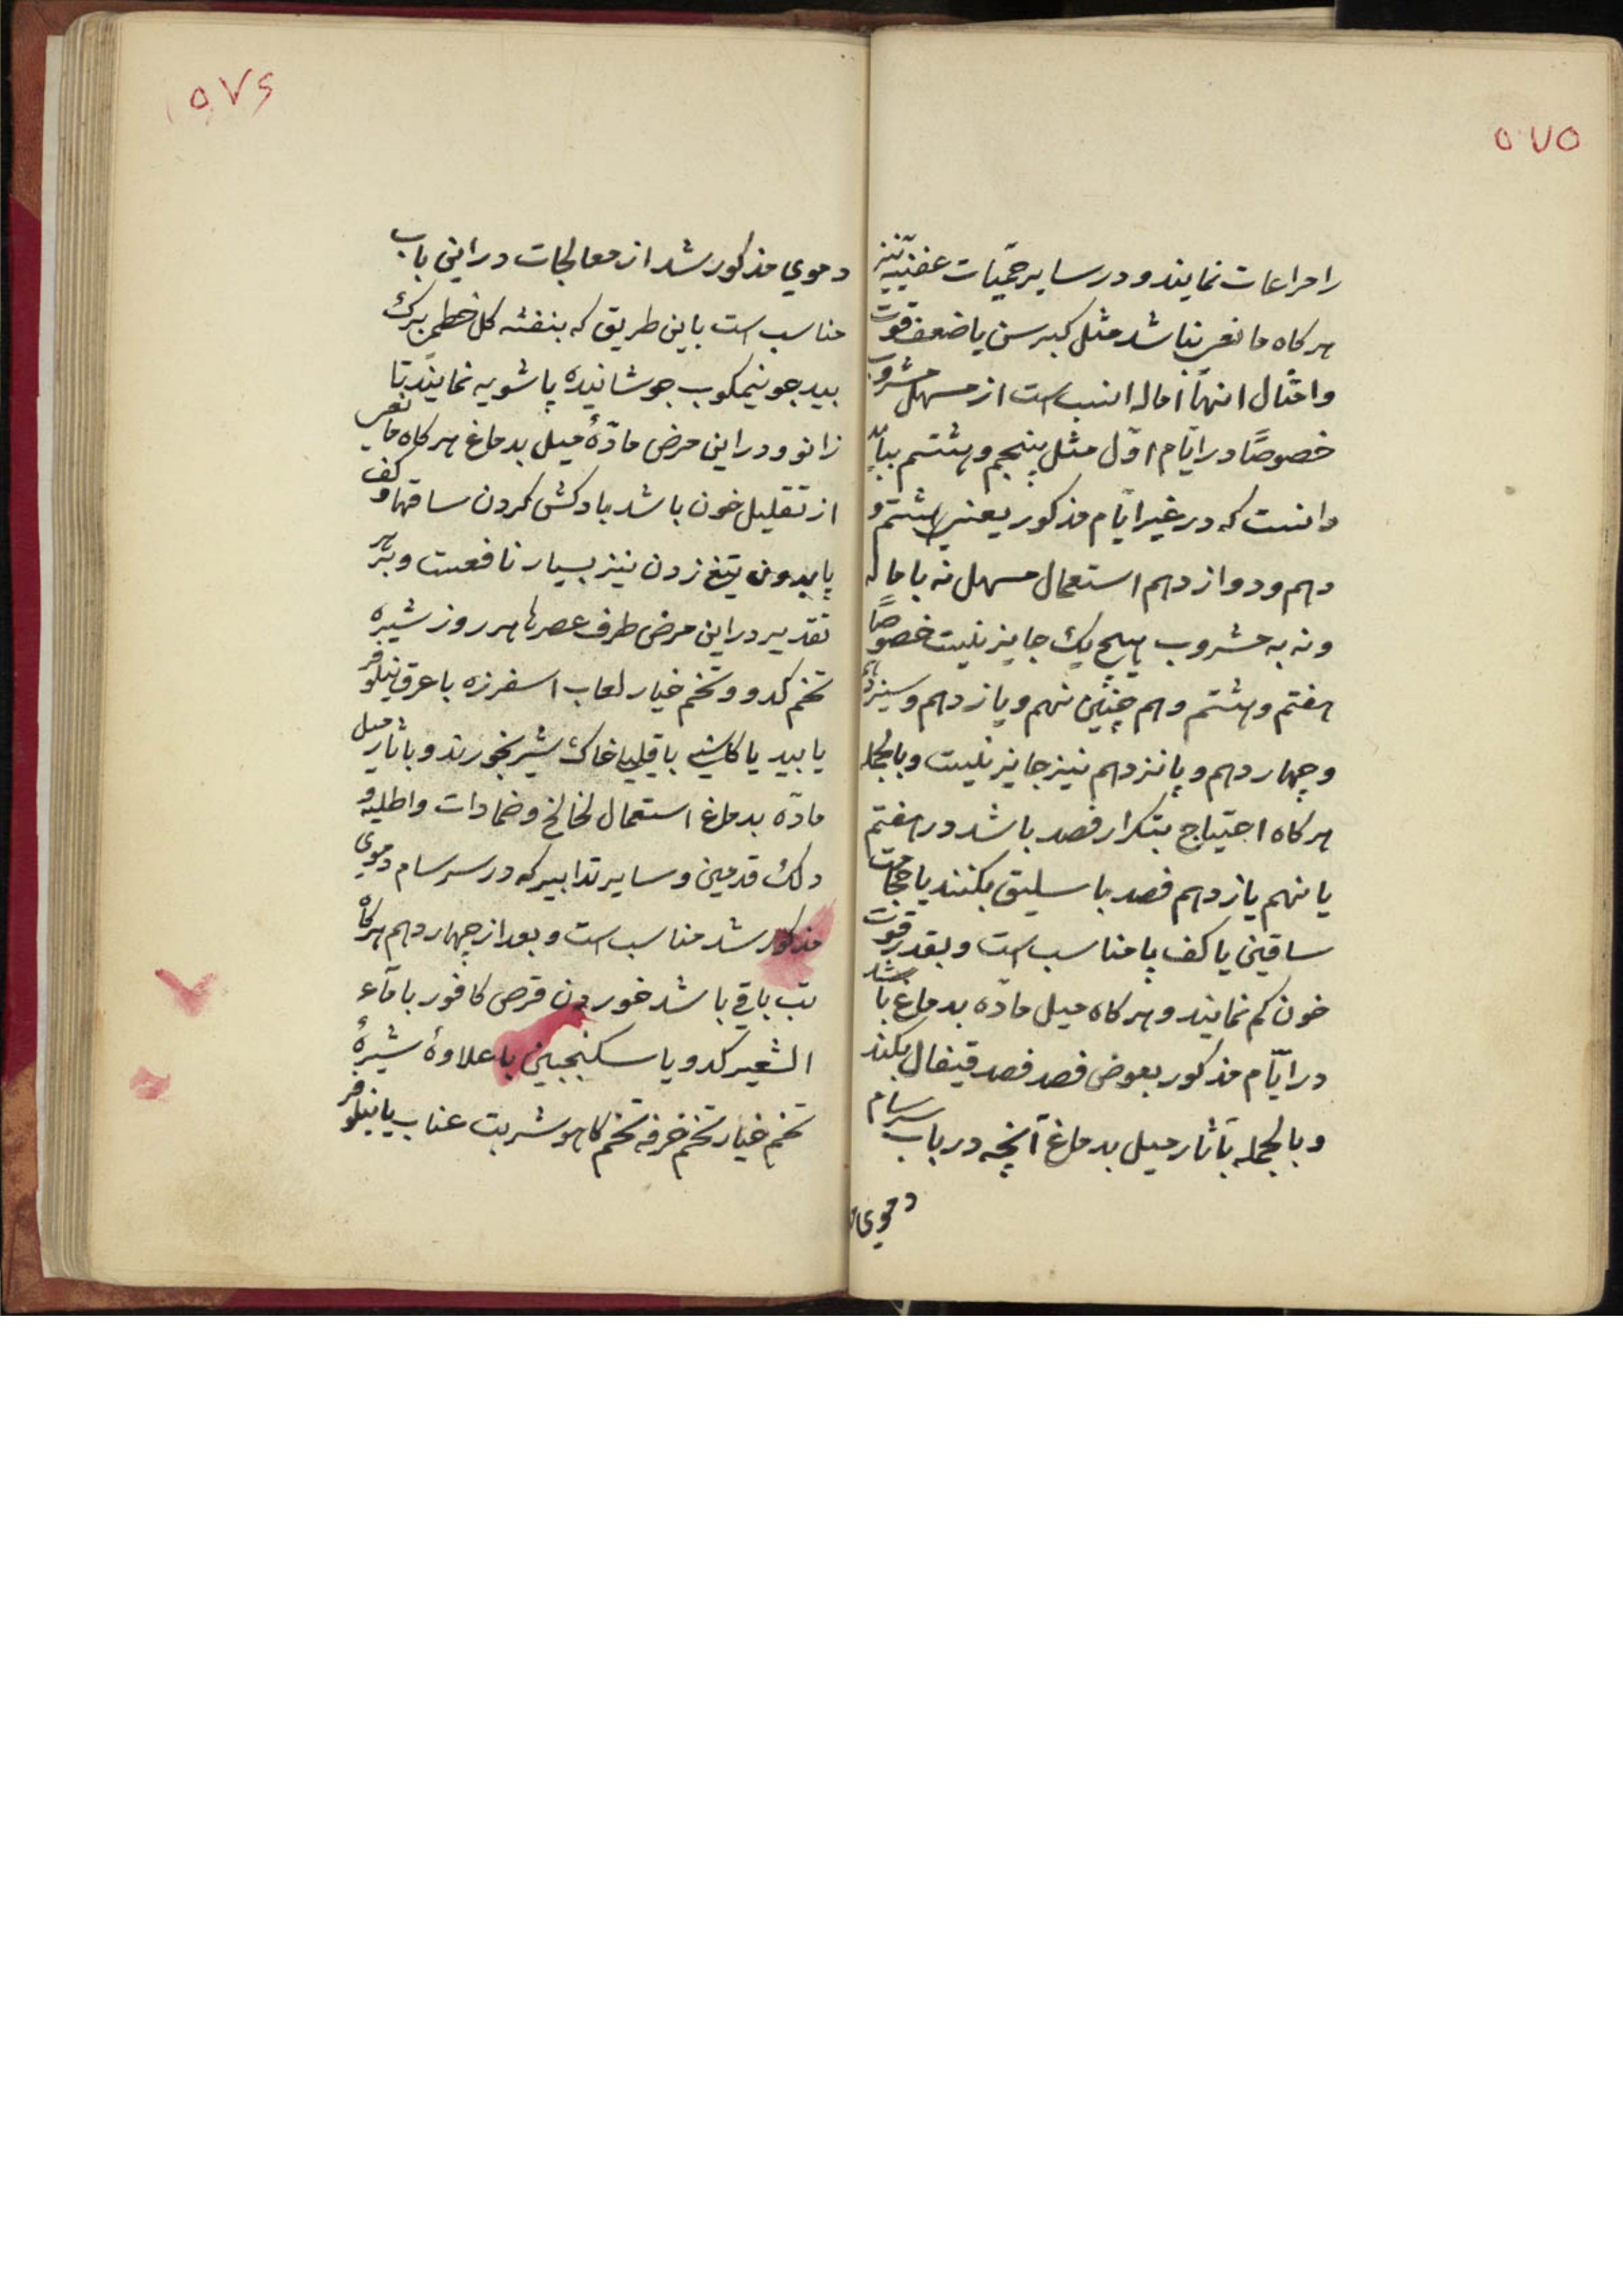 ۵۷۵
را مراعات نمایند و در سایر حمّیات عفنیّه نیز
هرکاه مانعی نباشد مثل کبر سن یا ضعف قوت
و امثال انها اماله انسب است از مسهل مشروب
خصوصًا در ایّام اوّل مثل پنجم و هشتم بباید
دانست که در غیر ایّام مذکور یعنی هشتم و
دهم و دوازدهم استعمال مسهل نه باماله
و نه به مشروب هیچ یک جایز نیست خصوصًا
هفتم و هشتم و هم چنین نهم و یازدهم و سیزدهم
و چهاردهم و پانزدهم نیز جایز نیست و بالجمله
هرکاه احتیاج بتکرار فصد باشد در هفتم
یا نهم یازدهم فصد باسلیق بکنند یا حجامت
ساقین یا کف پا مناسب است و بقدر قوت
خون کم نمایند و هرکاه میل مادّه بدماغ باشد
در ایّام مذکور بعوض فصد فصد قیفال بکنند
و بالجمله بآثار میل بدماغ آنچه در باب سرسام
دموی
۵۷۶
دموی مذکور شد از معالجات در این باب
مناسب است باین طریق که بنفشه کل خطمی برک
بید جو نیمکوب جوشانیده پاشویه نمایند تا
زانو و در این مرض مادّهٔ میل بدماغ هرکاه مانعی
از تقلیل خون باشد بادکش کردن ساقها و کف
پا بدون تیغ زدن نیز بسیار نافعست و بهر
تقدیر در این مرض طرف عصرها هر روز شیره
تخم کدو و تخم خیار لعاب اسفرزه با عرق نیلوفر
یا بید یا کاسنی با قلیلیا خاک شیر بخورند و بآثار میل
مادّه بدماغ استعمال لخالخ و ضمادات و اطلیه و
دلک قدمین و سایر تدابیر که در سرسام دموی
مذکور شد مناسب است و بعد از چهاردهم هرکاه
تب باقی باشد خوردن قرص کافور با مآء
الشعیر کدو یا سکنجبین با علاوهٔ شیرهٔ
تخم خیار تخم خرفه تخم کاهو شربت عناب یا نیلوفر